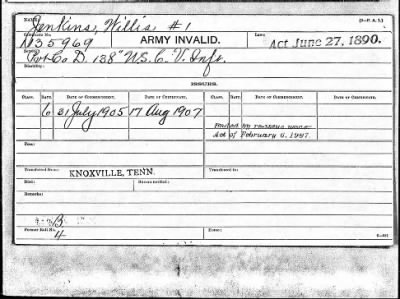 Name: Jenkins, Willis, #1 (3-P. A.)
Certificate No. 1135969 ARMY INVALID. Law: Act June 27, 1890.
Service: Pvt Co D. 138" U.S.C.V. Inf.
Disability:
ISSUES.
CLASS. RATE. DATE OF COMMENCEMENT. DATE OF CERTIFICATE. CLASS. RATE. DATE OF COMMENCEMENT. DATE OF CERTIFICATE.
6 31 July 1905 17 Aug 1907
Act of February 6, 1907.
Transferred from KNOXVILLE, TENN.
Died:
Remarks:
B
Former Roll No. 4 Home: